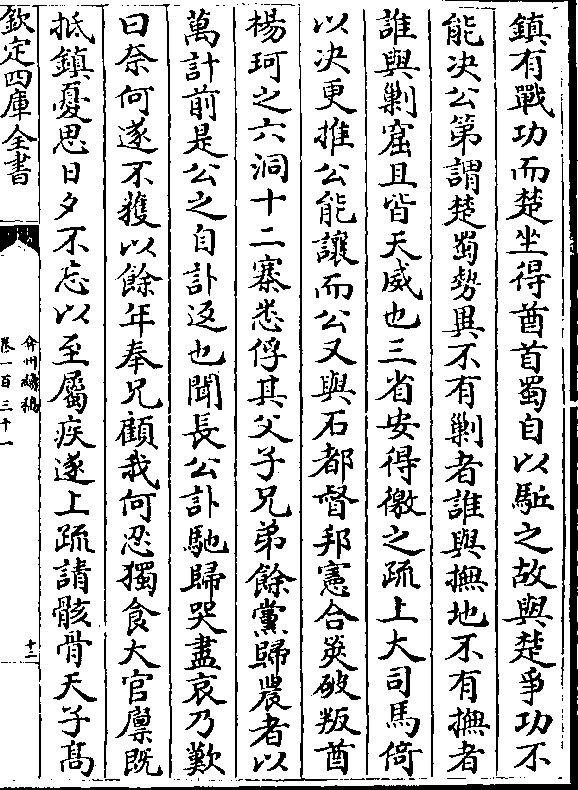 鎮有戰功而楚坐得酋首蜀自以駈之故與楚爭功不
能决公第謂楚蜀勢異不有剿者誰與撫地不有撫者
誰與剿窟且皆天威也三省安得徼之疏上大司馬倚
以决更推公能讓而公又與石都督邦憲合筴破叛酋
楊珂之六洞十二寨悉俘其父子兄弟餘黨歸農者以
萬計前是公之自訃返也聞長公訃馳歸哭盡哀乃歎
曰奈何遂不獲以餘年奉兄顧我何忍獨食大官廪既
抵鎮憂思日夕不忘以至屬疾遂上疏請骸骨天子髙
欽定四庫全書
弇州續稿
卷一百三十一
十二